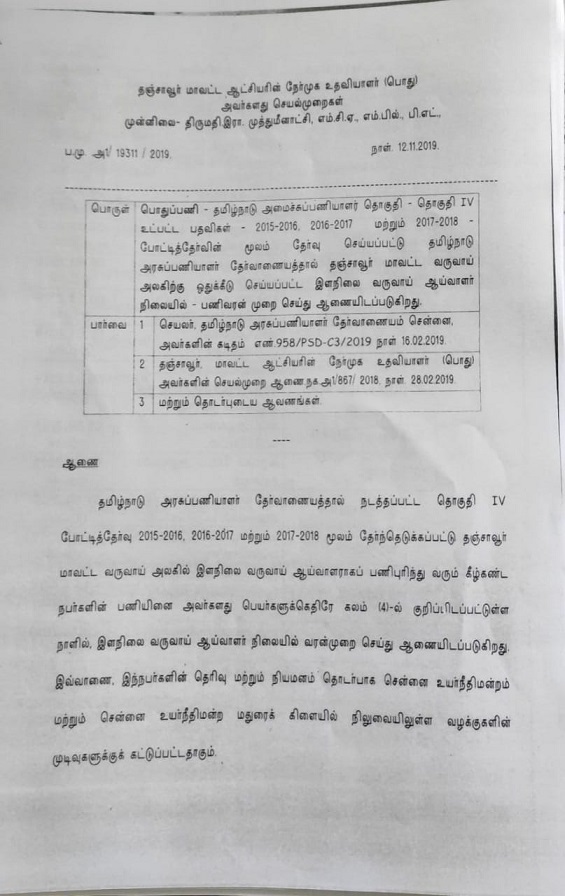 தஞ்சாவூர் மாவட்ட ஆட்சியரின் நேர்முக உதவியாளர் (பொது)
அவர்களது செயல்முறைகள்
முன்னிலை- திருமதி.இரா. முத்துமீனாட்சி, எம்.சி.ஏ., எம்.பில்., பி.எட்.,
ப.மு. அ1/ 19311 / 2019. நாள். 12.11.2019.
பொருள் பொதுப்பணி - தமிழ்நாடு அமைச்சுப்பணியாளர் தொகுதி - தொகுதி IV
உட்பட்ட பதவிகள் - 2015-2016, 2016-2017 மற்றும் 2017-2018 -
போட்டித்தேர்வின் மூலம் தேர்வு செய்யப்பட்டு தமிழ்நாடு
அரசுப்பணியாளர் தேர்வாணையத்தால் தஞ்சாவூர் மாவட்ட வருவாய்
அலகிற்கு ஒதுக்கீடு செய்யப்பட்ட இளநிலை வருவாய் ஆய்வாளர்
நிலையில் - பணிவரன் முறை செய்து ஆணையிடப்படுகிறது.
பார்வை 1 செயலர், தமிழ்நாடு அரசுப்பணியாளர் தேர்வாணையம் சென்னை,
அவர்களின் கடிதம் எண்.958/PSD-C3/2019 நாள் 16.02.2019.
2 தஞ்சாவூர், மாவட்ட ஆட்சியரின் நேர்முக உதவியாளர் (பொது)
அவர்களின் செயல்முறை ஆணை.ந.க.அ1/867/ 2018, நாள். 28.02.2019.
3 மற்றும் தொடர்புடைய ஆவணங்கள்.
----
ஆணை
தமிழ்நாடு அரசுப்பணியாளர் தேர்வாணையத்தால் நடத்தப்பட்ட தொகுதி IV
போட்டித்தேர்வு 2015-2016, 2016-2017 மற்றும் 2017-2018 மூலம் தேர்ந்தெடுக்கப்பட்டு தஞ்சாவூர்
மாவட்ட வருவாய் அலகில் இளநிலை வருவாய் ஆய்வாளராகப் பணிபுரிந்து வரும் கீழ்கண்ட
நபர்களின் பணியினை அவர்களது பெயர்களுக்கெதிரே கலம் (4)-ல் குறிப்பிடப்பட்டுள்ள
நாளில், இளநிலை வருவாய் ஆய்வாளர் நிலையில் வரன்முறை செய்து ஆணையிடப்படுகிறது.
இவ்வாணை, இந்நபர்களின் தெரிவு மற்றும் நியமனம் தொடர்பாக சென்னை உயர்நீதிமன்றம்
மற்றும் சென்னை உயர்நீதிமன்ற மதுரைக் கிளையில் நிலுவையிலுள்ள வழக்குகளின்
முடிவுகளுக்குக் கட்டுப்பட்டதாகும்.